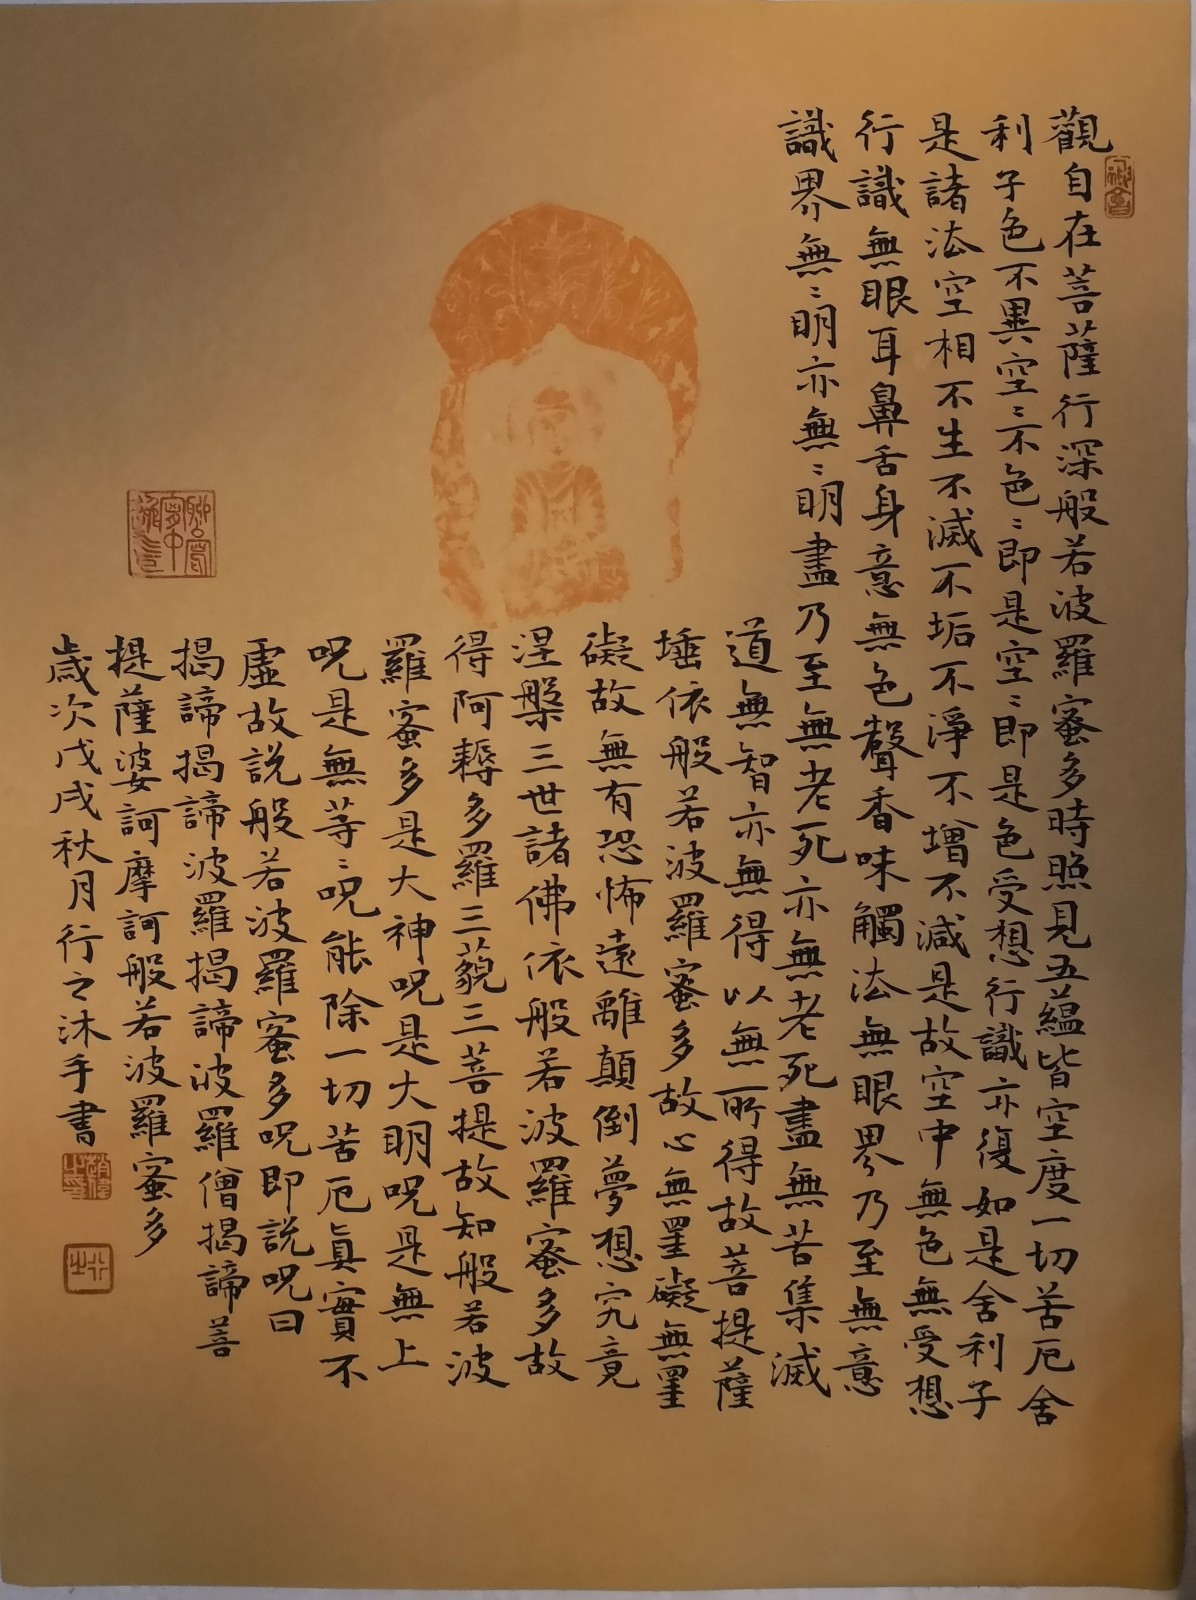 觀自在菩薩行深般若波羅蜜多時照見五蘊皆空度一切苦厄舍
利子色不異空〻不色〻即是空〻即是色受想行識亦復如是舍利子
是諸法空相不生不滅不垢不淨不增不減是故空中無色無受想
行識無眼耳鼻舌身意無色聲香味觸法無眼界乃至無意
識界無〻明亦無〻明盡乃至無老死亦無老死盡無苦集滅
道無智亦無得以無所得故菩提薩
埵依般若波羅蜜多故心無罣礙無罣
礙故無有恐怖遠離顛倒夢想究竟
涅槃三世諸佛依般若波羅蜜多故
得阿耨多羅三藐三菩提故知般若波
羅蜜多是大神呪是大明呪是無上
呪是無等〻呪能除一切苦厄真實不
虛故説般若波羅蜜多呪即説呪曰
揭諦揭諦波羅揭諦波羅僧揭諦菩
提薩婆訶摩訶般若波羅蜜多
歲次戊戌秋月行之沐手書
行之